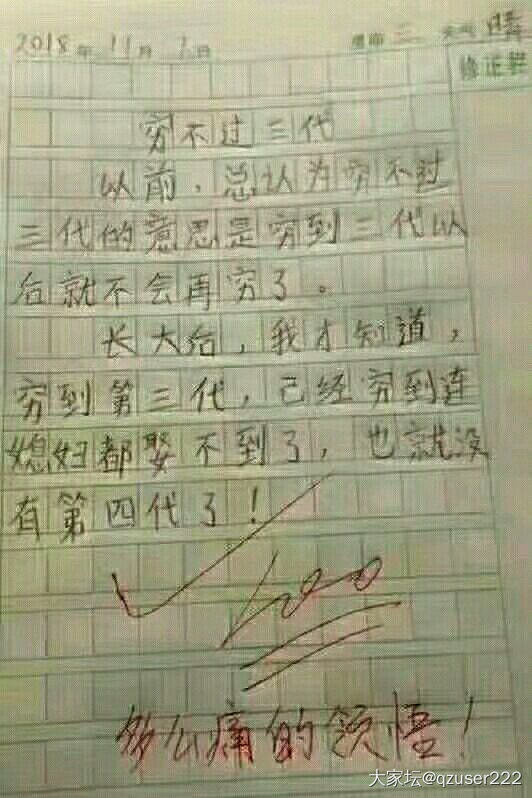 2018年 11月 7日 星期 三 天气 晴
修正栏
穷不过三代
以前，总认为穷不过
三代的意思是穷到三代以
后就不会再穷了。
长大后，我才知道，
穷到第三代，已经穷到连
媳妇都娶不到了，也就没
有第四代了！
100
多么痛的领悟！
大家坛@qzuser222